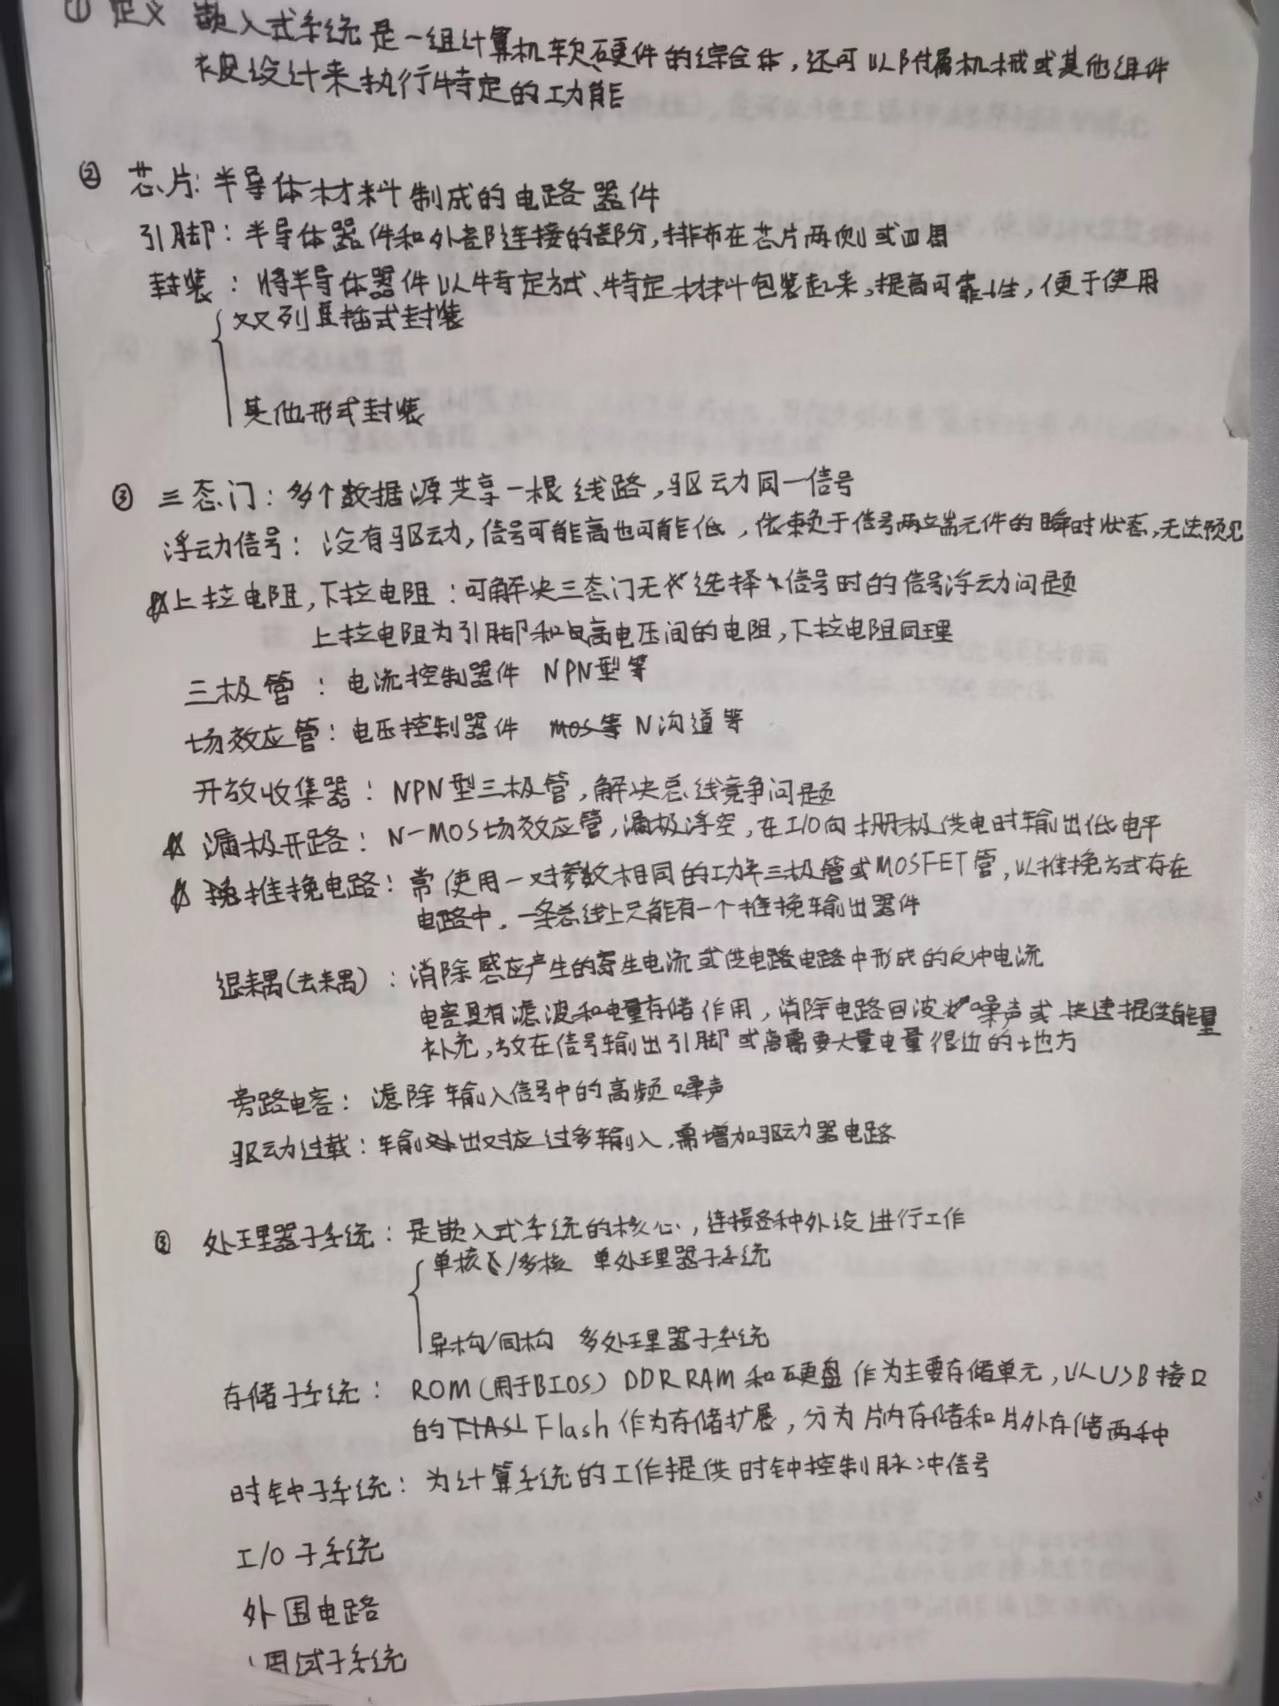 ① 定义 嵌入式系统是一组计算机软硬件的综合体，还可以附属机械或其他组件
被设计来执行特定的功能
② 芯片：半导体材料制成的电路器件
引脚：半导体器件和外部连接的部分，排布在芯片两侧或四周
封装：将半导体器件以特定方式、特定材料包装起来，提高可靠性，便于使用
双列直插式封装
其他形式封装
③ 三态门：多个数据源共享一根线路，驱动同一信号
浮动信号：没有驱动，信号可能高也可能低，依赖于信号两端元件的瞬时状态，无法预见
上拉电阻，下拉电阻：可解决三态门无选择信号时的信号浮动问题
上拉电阻为引脚和高电压间的电阻，下拉电阻同理
三极管：电流控制器件 NPN型等
场效应管：电压控制器件 MOS等 N沟道等
开放收集器：NPN型三极管，解决总线竞争问题
漏极开路：N-MOS场效应管，漏极浮空，在I/O向栅极供电时输出低电平
推挽电路：常使用一对参数相同的功率三极管或MOSFET管，以推挽方式存在
电路中，一条总线上只能有一个推挽输出器件
退耦(去耦)：消除感应产生的寄生电流或供电路电路中形成的反冲电流
电容具有滤波和电量存储作用，消除电路回波噪声或快速提供能量
补充，放在信号输出引脚或离需要大量电量很近的地方
旁路电容：滤除输入信号中的高频噪声
驱动过载：输出对应过多输入，需增加驱动器电路
③ 处理器子系统：是嵌入式系统的核心，连接各种外设进行工作
单核/多核 单处理器子系统
异构/同构 多处理器子系统
存储子系统：ROM(用于BIOS) DDR RAM和硬盘作为主要存储单元，以USB接口
的Flash作为存储扩展，分为片内存储和片外存储两种
时钟子系统：为计算系统的工作提供时钟控制脉冲信号
I/O子系统
外围电路
调试子系统